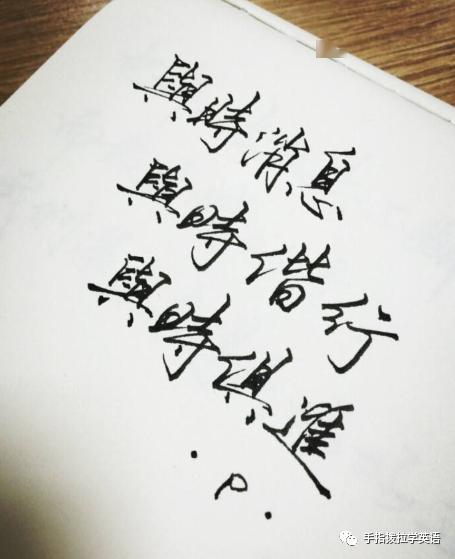 與時消息
與時偕行
與時俱進
.P.
手指拨拉学英语